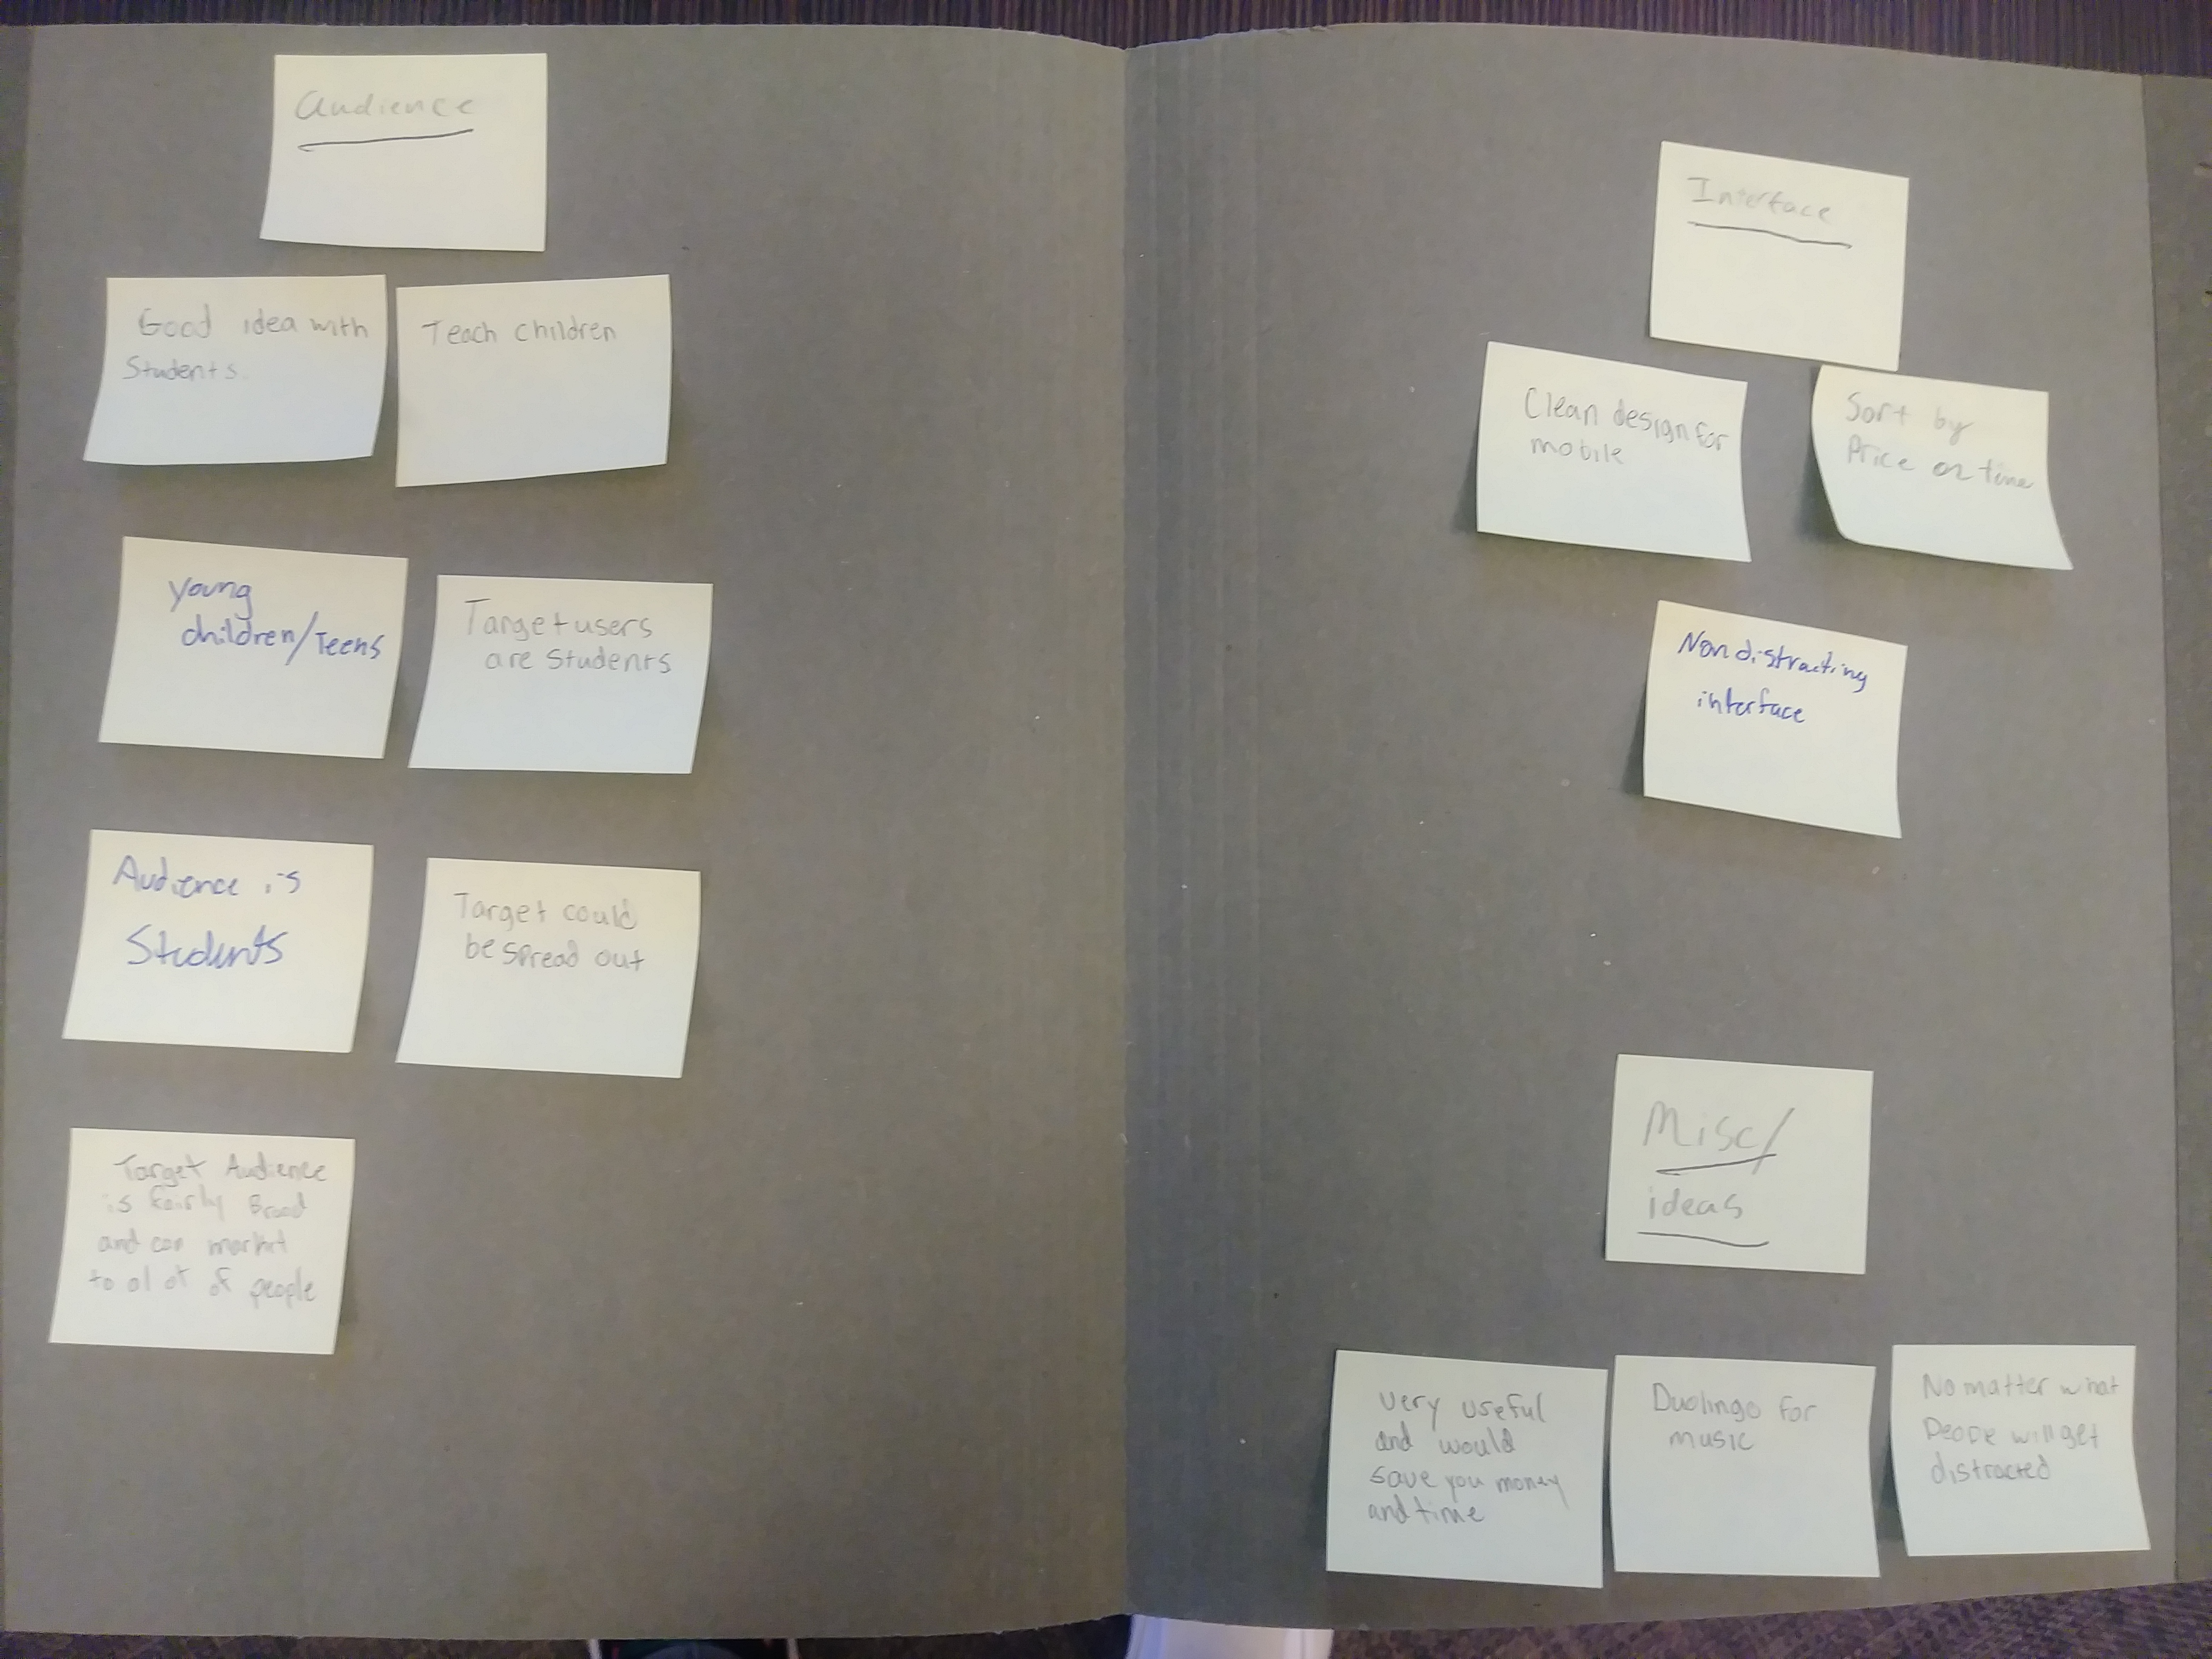 Audience
Good idea with
Students.
Teach children
Young
children/Teens
Target users
are Students
Audience is
Students
Target could
be spread out
Target Audience
is fairly Broad
and can market
to alot of people
Interface
Clean design for
mobile
Sort by
Price or time
Non distracting
interface
Misc/
ideas
very useful
and would
save you money
and time
Duolingo for
music
No matter what
Peope will get
distracted